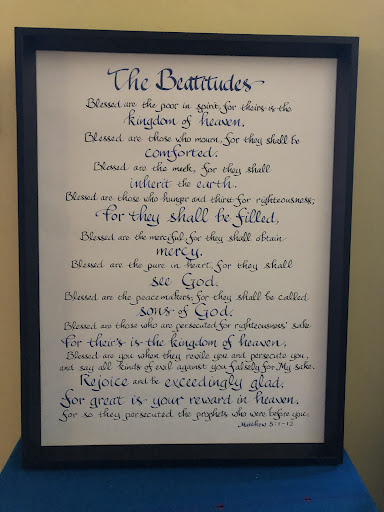 The Beatitudes
Blessed are the poor in spirit, for theirs is the
kingdom of heaven.
Blessed are those who mourn, for they shall be
comforted.
Blessed are the meek, for they shall
inherit the earth.
Blessed are those who hunger and thirst for righteousness;
for they shall be filled.
Blessed are the merciful, for they shall obtain
mercy.
Blessed are the pure in heart, for they shall
see God.
Blessed are the peacemakers, for they shall be called
sons of God.
Blessed are those who are persecuted for righteousness' sake
for their's is the kingdom of heaven.
Blessed are you when they revile you and persecute you,
and say all kinds of evil against you falsely for My sake.
Rejoice and be exceedingly glad,
for great is your reward in heaven,
for so they persecuted the prophets who were before you.
Matthew 5:1-12